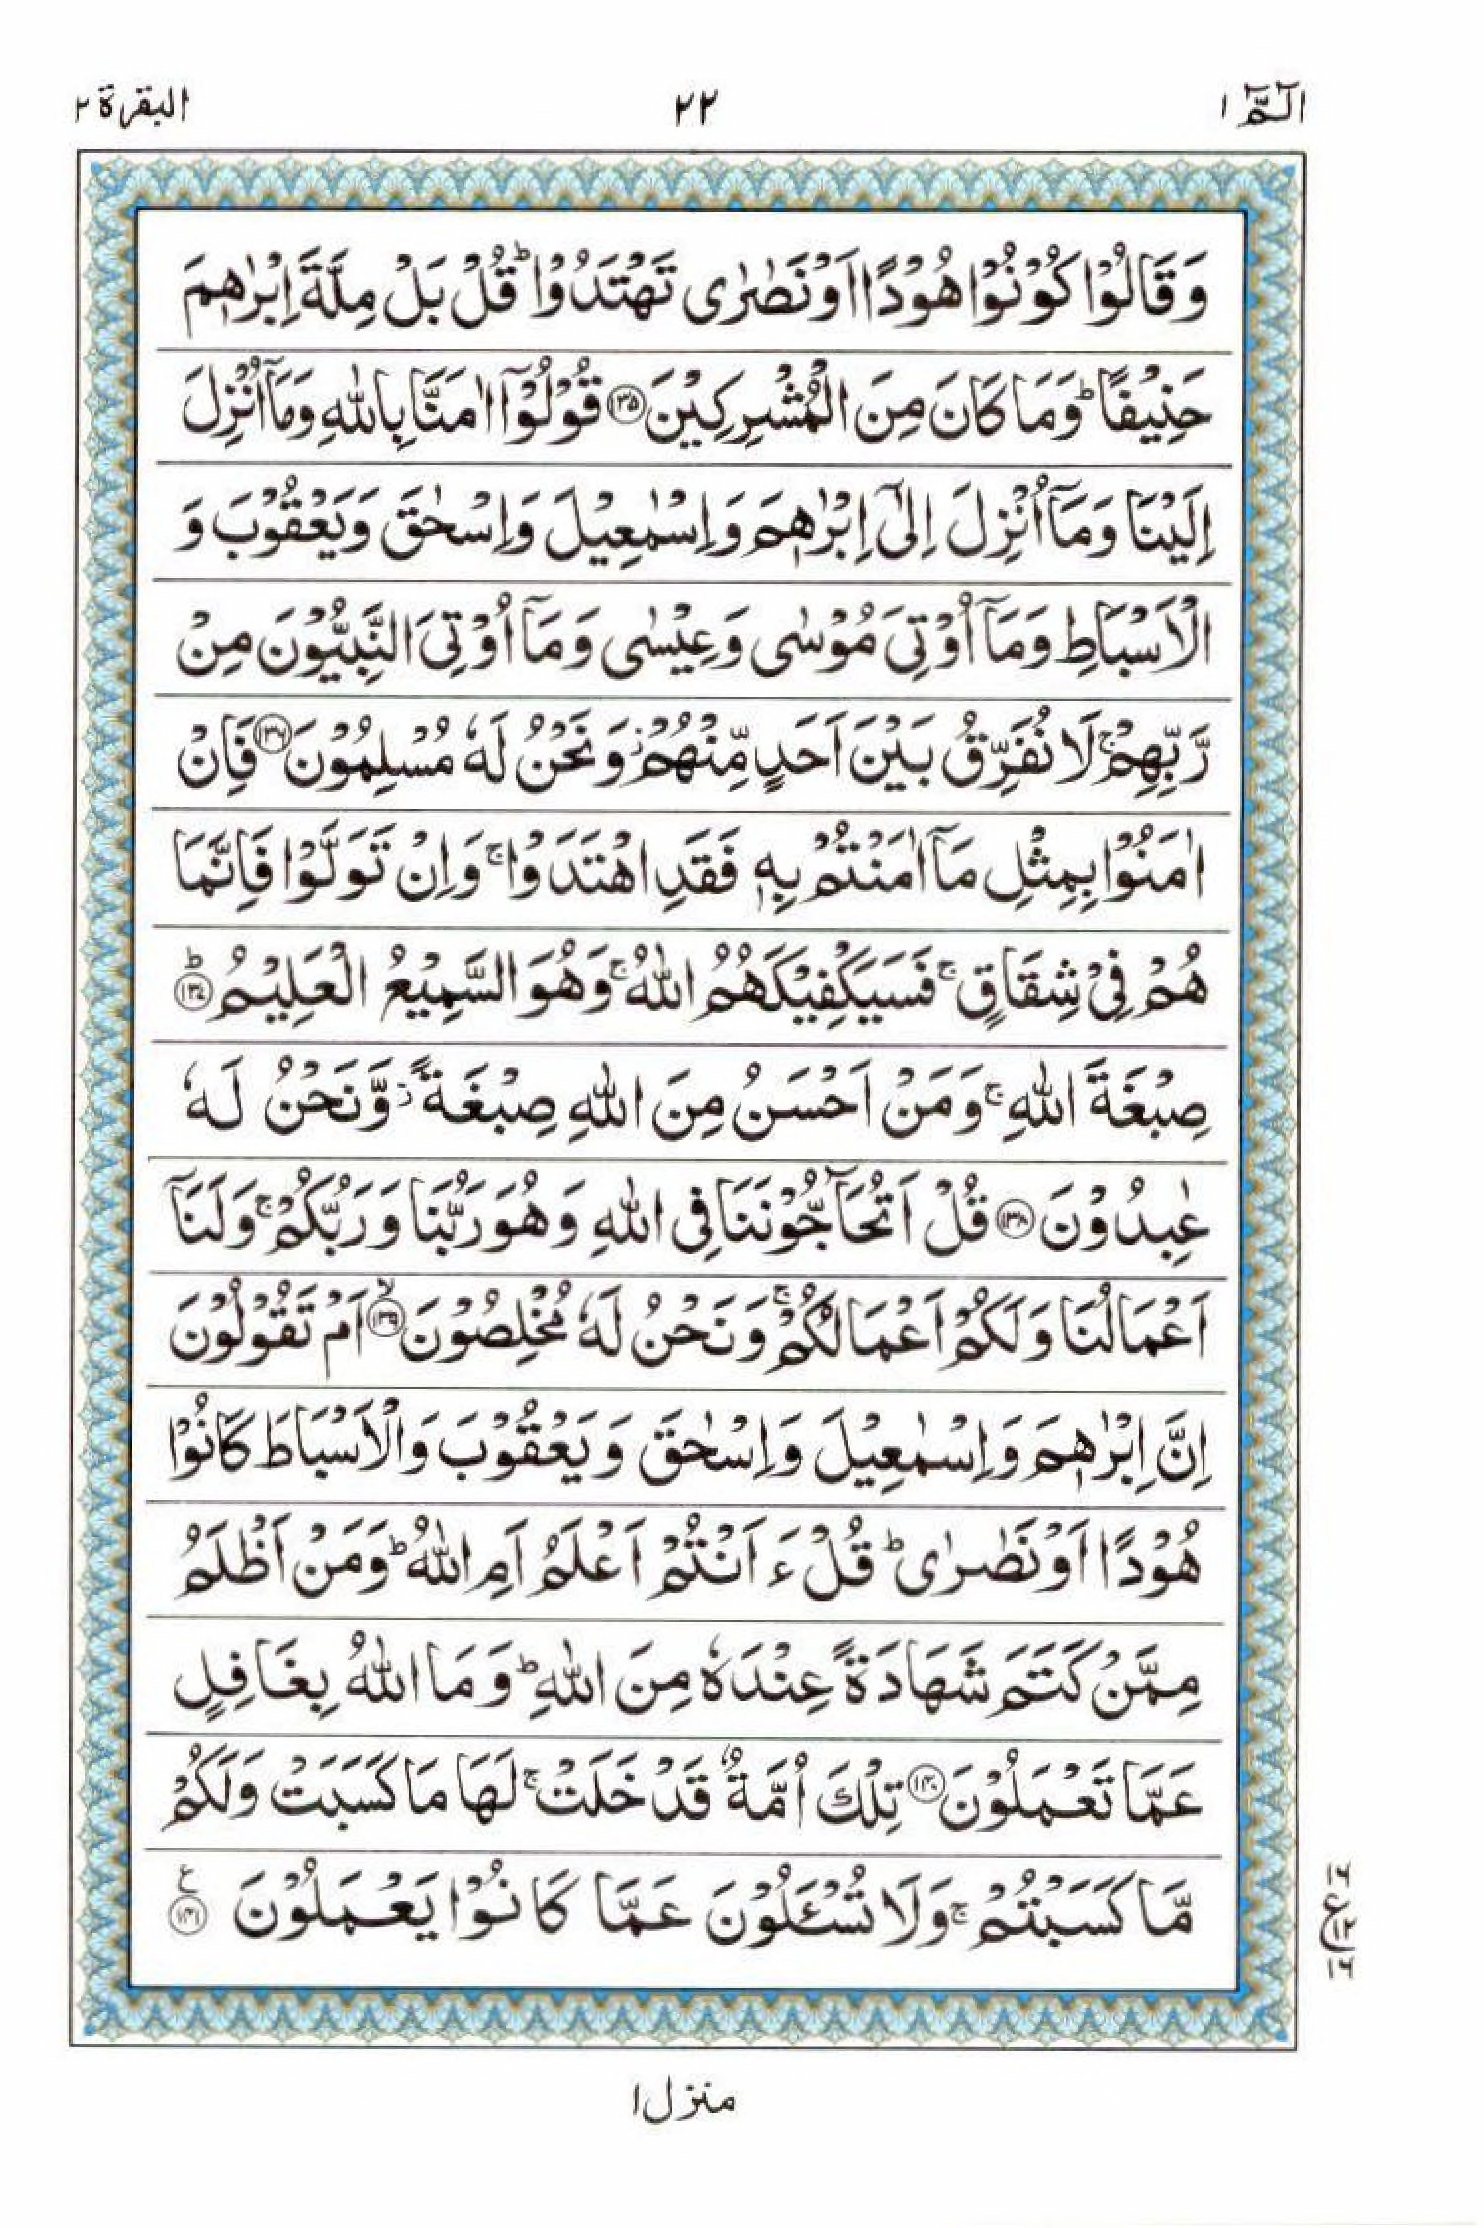 الٓمّٓ ١
٢٢
البقرة ٢
وَقَالُوْا كُوْنُوْا هُوْدًا اَوْ نَصٰرٰى تَهْتَدُوْا ؕ قُلْ بَلْ مِلَّةَ اِبْرٰهٖمَ
حَنِيْفًا ؕ وَمَا كَانَ مِنَ الْمُشْرِكِيْنَ ۝۱۳۵ قُوْلُوْۤا اٰمَنَّا بِاللّٰهِ وَمَاۤ اُنْزِلَ
اِلَيْنَا وَمَاۤ اُنْزِلَ اِلٰۤى اِبْرٰهٖمَ وَاِسْمٰعِيْلَ وَاِسْحٰقَ وَيَعْقُوْبَ وَ
الْاَسْبَاطِ وَمَاۤ اُوْتِيَ مُوْسٰى وَعِيْسٰى وَمَاۤ اُوْتِيَ النَّبِيُّوْنَ مِنْ
رَّبِّهِمْ ۚ لَا نُفَرِّقُ بَيْنَ اَحَدٍ مِّنْهُمْ ؗ وَنَحْنُ لَهٗ مُسْلِمُوْنَ ۝۱۳۶ فَاِنْ
اٰمَنُوْا بِمِثْلِ مَاۤ اٰمَنْتُمْ بِهٖ فَقَدِ اهْتَدَوْا ۚ وَاِنْ تَوَلَّوْا فَاِنَّمَا
هُمْ فِيْ شِقَاقٍ ۚ فَسَيَكْفِيْكَهُمُ اللّٰهُ ۚ وَهُوَ السَّمِيْعُ الْعَلِيْمُ ؕ۝۱۳۷
صِبْغَةَ اللّٰهِ ۚ وَمَنْ اَحْسَنُ مِنَ اللّٰهِ صِبْغَةً ؗ وَّنَحْنُ لَهٗ
عٰبِدُوْنَ ۝۱۳۸ قُلْ اَتُحَآجُّوْنَنَا فِي اللّٰهِ وَهُوَ رَبُّنَا وَرَبُّكُمْ ۚ وَلَنَاۤ
اَعْمَالُنَا وَلَكُمْ اَعْمَالُكُمْ ۚ وَنَحْنُ لَهٗ مُخْلِصُوْنَ ۙ۝۱۳۹ اَمْ تَقُوْلُوْنَ
اِنَّ اِبْرٰهٖمَ وَاِسْمٰعِيْلَ وَاِسْحٰقَ وَيَعْقُوْبَ وَالْاَسْبَاطَ كَانُوْا
هُوْدًا اَوْ نَصٰرٰى ؕ قُلْ ءَاَنْتُمْ اَعْلَمُ اَمِ اللّٰهُ ؕ وَمَنْ اَظْلَمُ
مِمَّنْ كَتَمَ شَهَادَةً عِنْدَهٗ مِنَ اللّٰهِ ؕ وَمَا اللّٰهُ بِغَافِلٍ
عَمَّا تَعْمَلُوْنَ ۝۱۴۰ تِلْكَ اُمَّةٌ قَدْ خَلَتْ ۚ لَهَا مَا كَسَبَتْ وَلَكُمْ
مَّا كَسَبْتُمْ ۚ وَلَا تُسْـَٔلُوْنَ عَمَّا كَانُوْا يَعْمَلُوْنَ ۝۱۴۱ ع
منزل ١